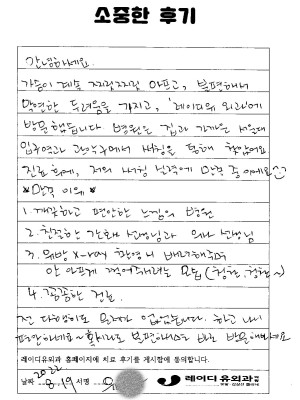 소중한 후기
안녕하세요.
가슴이 계속 찌릿찌릿 아프고, 불편해서
막연한 두려움을 가지고, '레이디유 외과'에
방문했습니다 병원은 집과 가까운 서울대
입구역과 관악구에서 서칭을 통해 찾았어요
진료 후에, 저의 서칭 능력에 만족 중이에요
*만족 이유*
1. 깨끗하고 편안한 느낌의 병원
2. 친절하신 간호사 선생님과 의사 선생님
3. 유방 X-ray 촬영시 배려해주며
안 아프게 찍어주려는 모습 (칭찬 칭찬~)
4. 꼼꼼한 진료
전 다행히도 문제가 없었습니다. 하고 나니
편안하네요~ 혹시라도 불편하다면 바로 방문해보세요
레이디유외과 홈페이지에 치료 후기를 게시함에 동의합니다.
날짜 2022 8.19 서명 유
레이디유외과